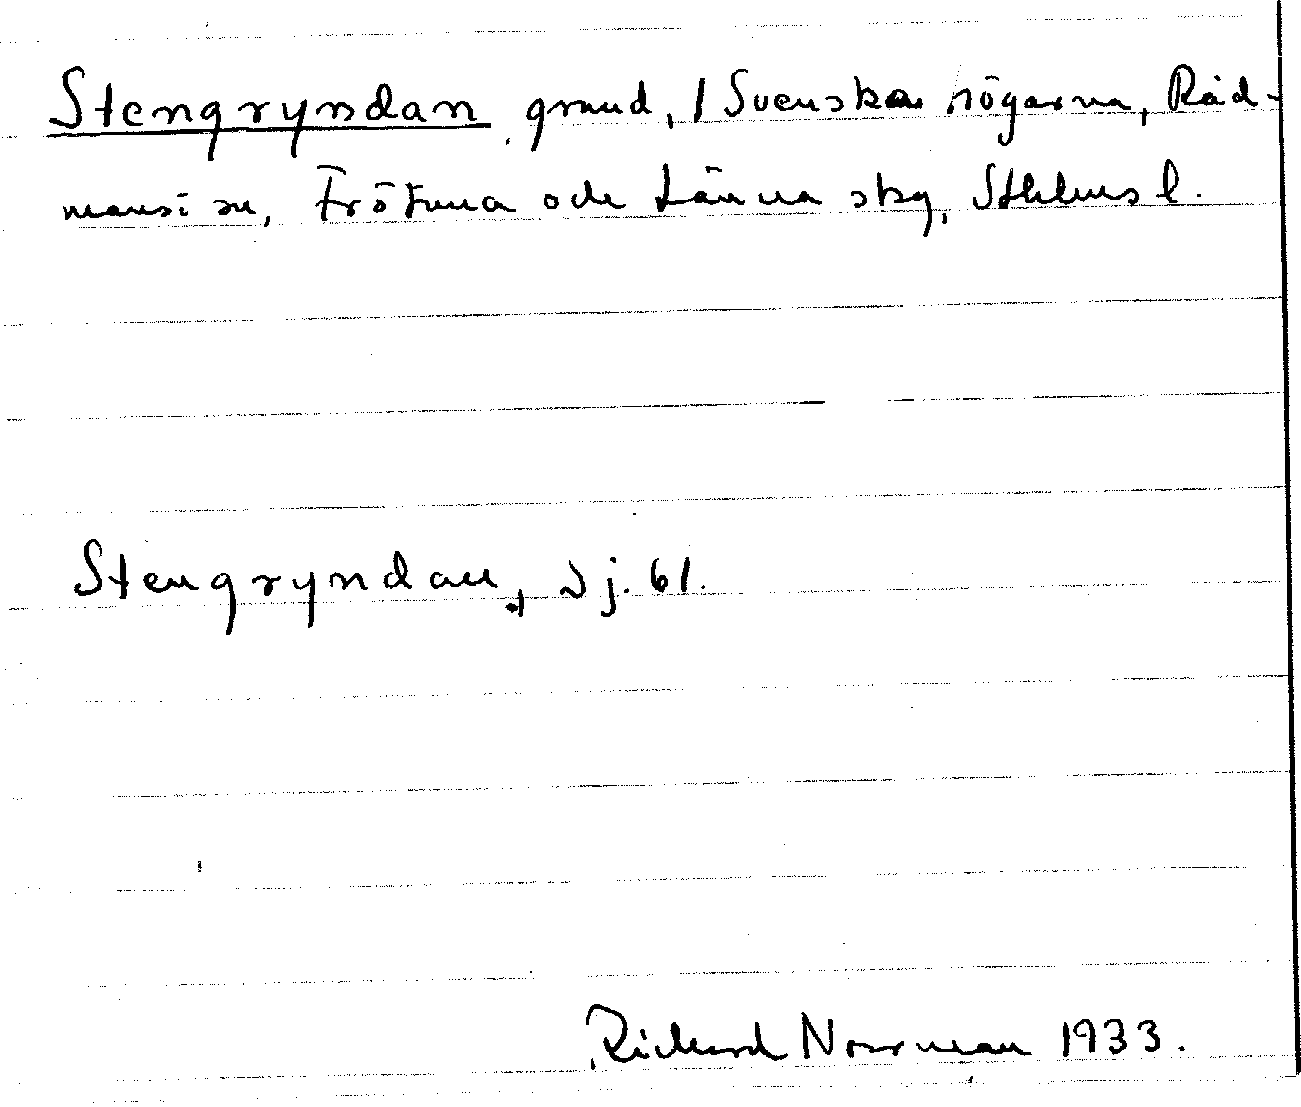 Stengryndan grund, / Svenska högarna, Råd-
mansö sn, Frötuna och Länna skg, Sthlms l.
Stengryndan, Sj. 61.
Richard Norrman 1933.